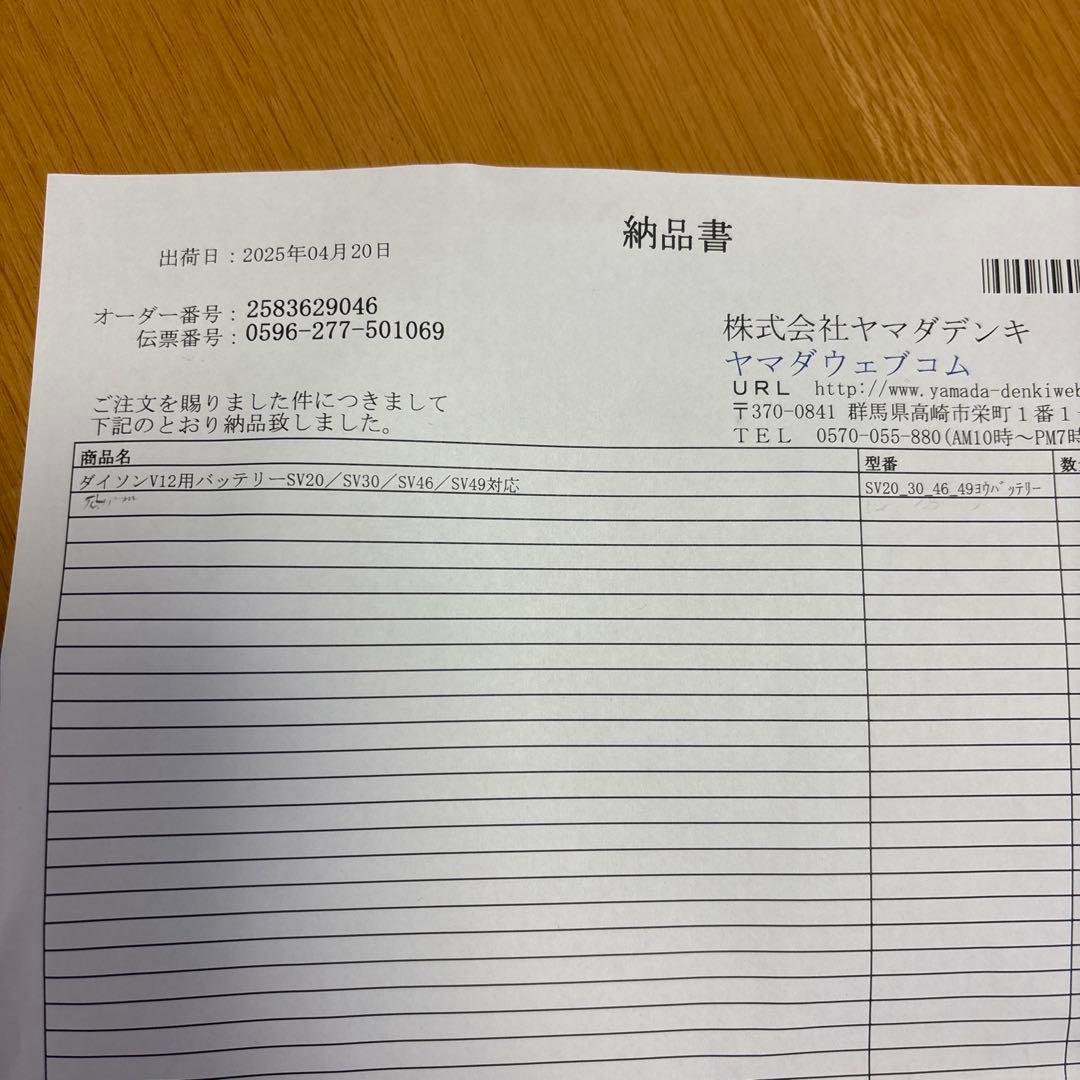 納品書
出荷日：2025年04月20日
オーダー番号：2583629046
伝票番号：0596-277-501069
株式会社ヤマダデンキ
ヤマダウェブコム
ＵＲＬ http://www.yamada-denkiweb
〒370-0841 群馬県高崎市栄町１番１
ＴＥＬ 0570-055-880(AM10時～PM7時
ご注文を賜りました件につきまして
下記のとおり納品致しました。
商品名 型番 数
ダイソンV12用バッテリーSV20／SV30／SV46／SV49対応 SV20_30_46_49ﾖｳﾊﾞｯﾃﾘｰ